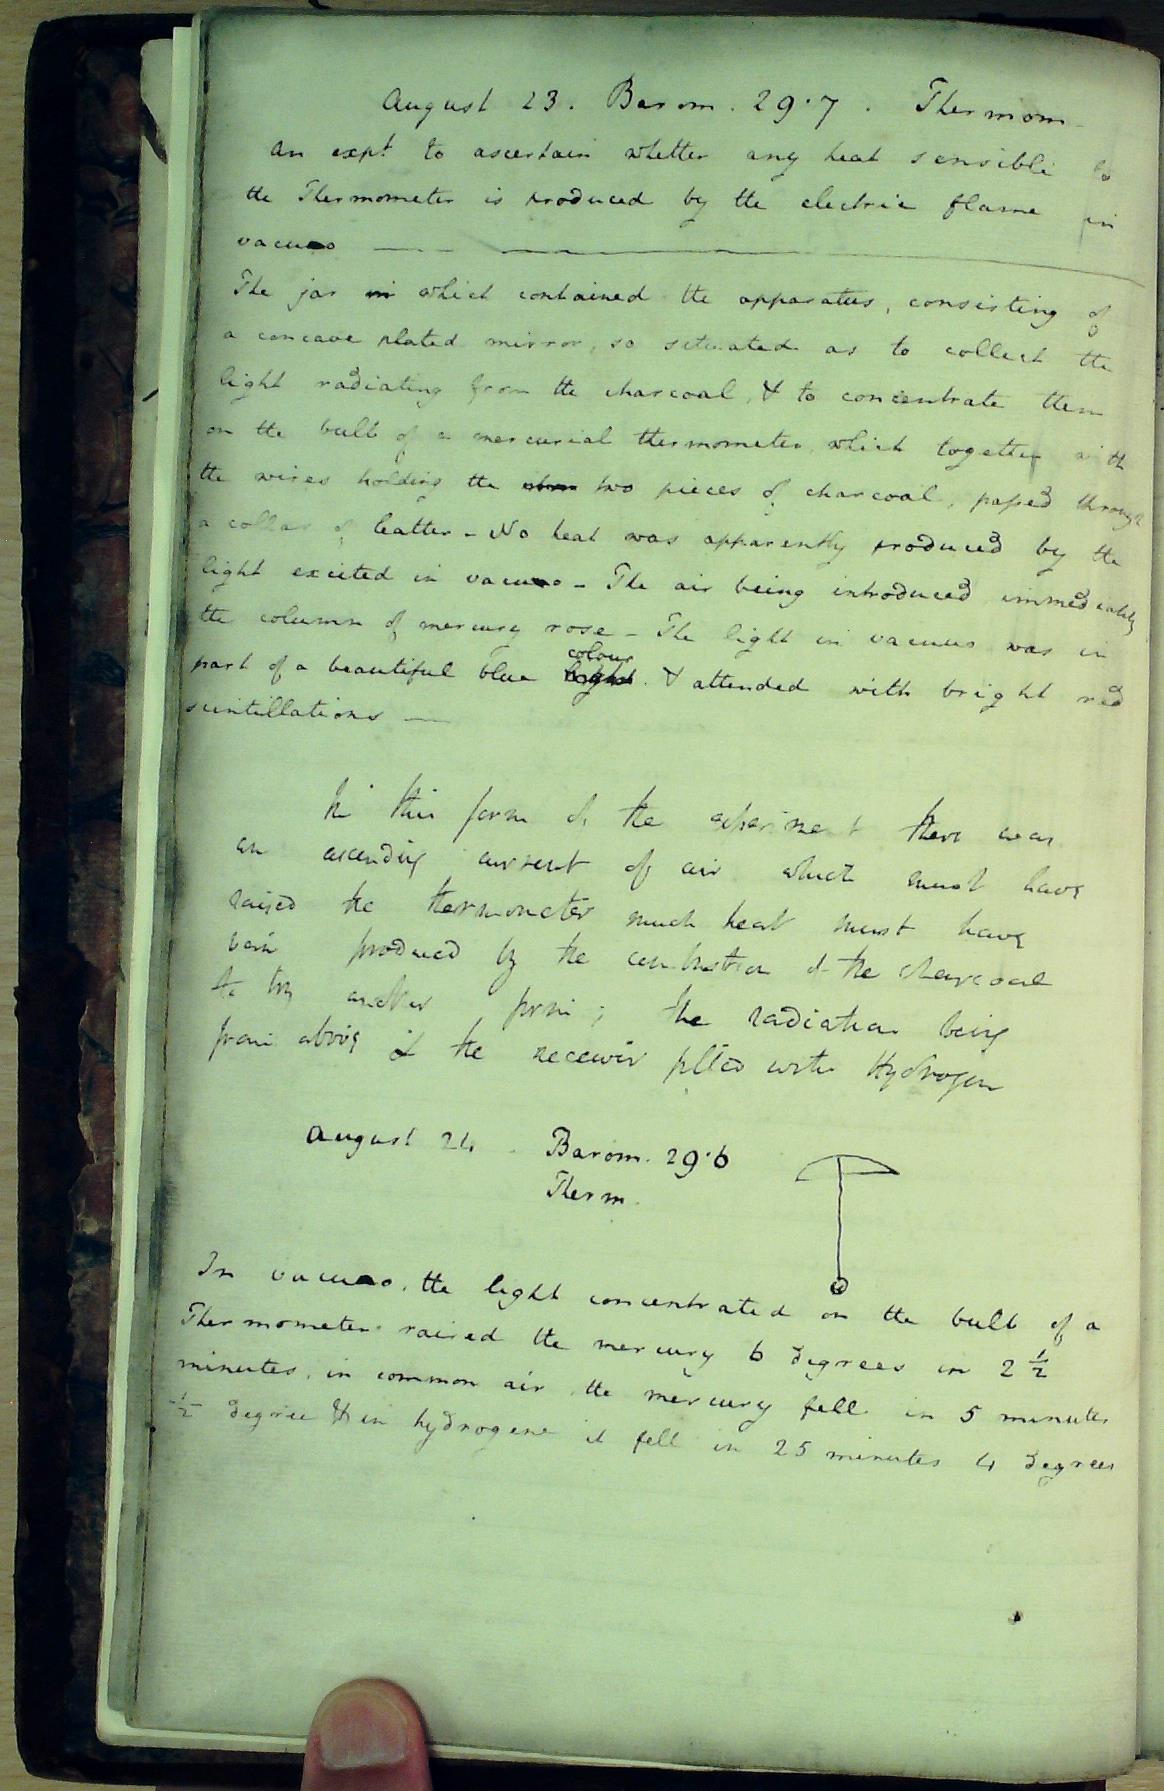 August 23. Barom. 29.7. Thermom
An expt to ascertain whether any heat sensible to
the Thermometer is produced by the electric flame in
vacuo
The jar in which contained the apparatus, consisting of
a concave plated mirror, so situated as to collect the
light radiating from the charcoal, & to concentrate them
on the bulb of a mercurial thermometer which together with
the wires holding the two pieces of charcoal, passed through
a collar of leather - No heat was apparently produced by the
light excited in vacuo - The air being introduced immediately
the column of mercury rose - The light in vacuo was in
part of a beautiful blue light colour & attended with bright red
scintillations
In this form of the experiment there was
an ascending current of air which must have
raised the thermometer much heat must have
been produced by the combustion of the charcoal
to try another form; the radiation being
from above & the receiver filled with Hydrogen
August 24. Barom. 29.6
Therm.
In vacuo, the light concentrated on the bulb of a
Thermometer raised the mercury 6 degrees in 2 1/2
minutes, in common air the mercury fell in 5 minutes
1/2 degree & in hydrogene it fell in 25 minutes 4 degrees